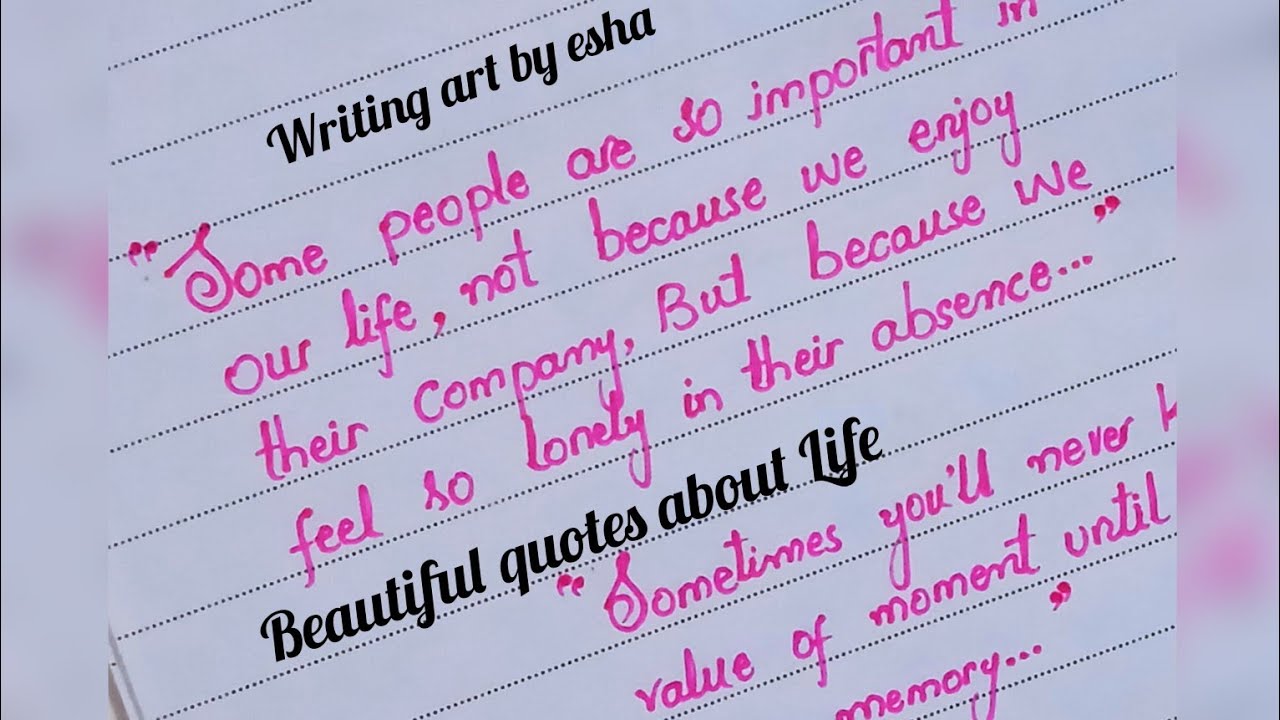 Writing art by esha
"Some people are so important in
our life, not because we enjoy
their company, But because we
feel so lonely in their absence..."
Beautiful quotes about Life
"Sometimes you'll never
value of moment until
memory..."